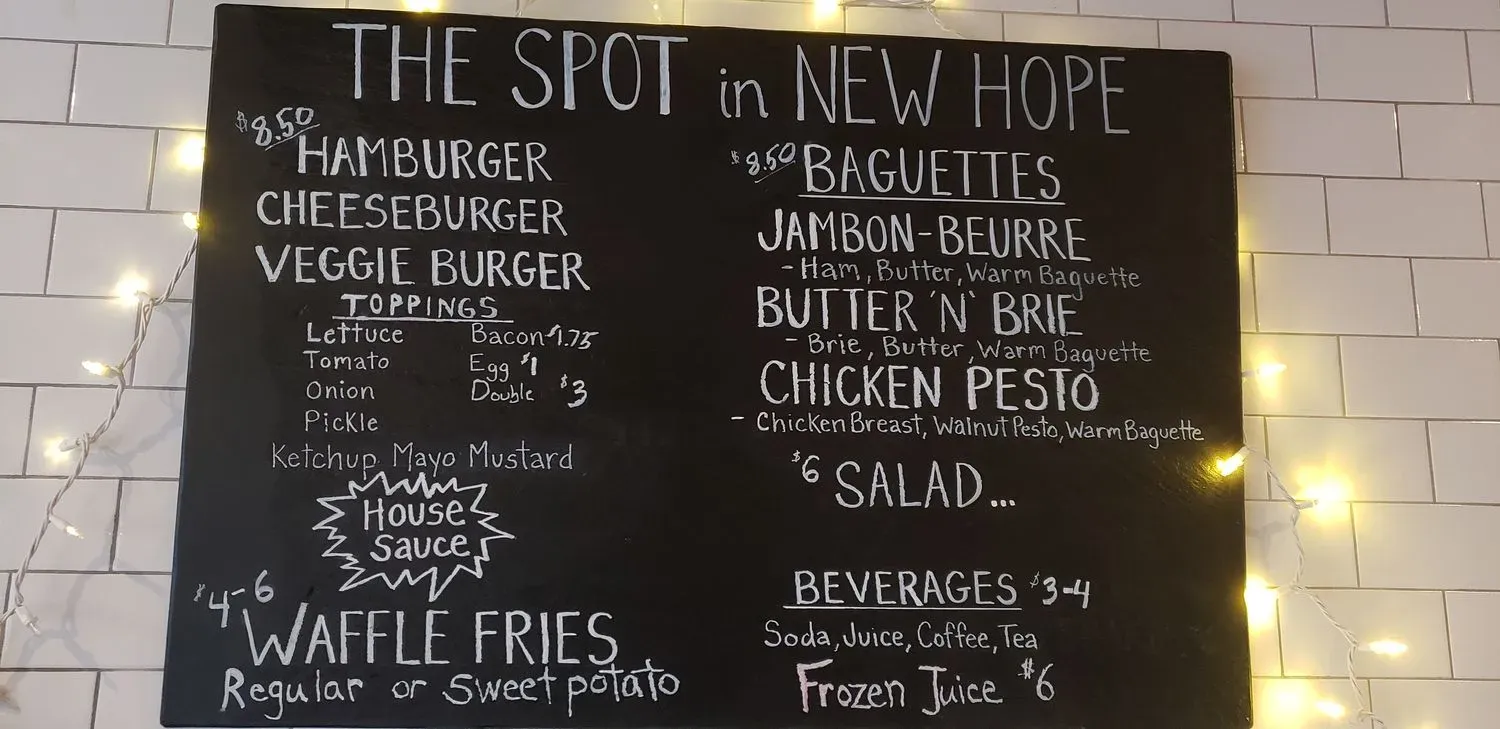 THE SPOT in NEW HOPE
$8.50
HAMBURGER
CHEESEBURGER
VEGGIE BURGER
TOPPINGS
Lettuce Bacon $1.75
Tomato Egg $1
Onion Double $3
Pickle
Ketchup Mayo Mustard
House
Sauce
$4-6
WAFFLE FRIES
Regular or Sweet potato
$8.50 BAGUETTES
JAMBON-BEURRE
- Ham, Butter, Warm Baguette
BUTTER 'N' BRIE
- Brie, Butter, Warm Baguette
CHICKEN PESTO
- Chicken Breast, Walnut Pesto, Warm Baguette
$6 SALAD...
BEVERAGES $3-4
Soda, Juice, Coffee, Tea
Frozen Juice $6